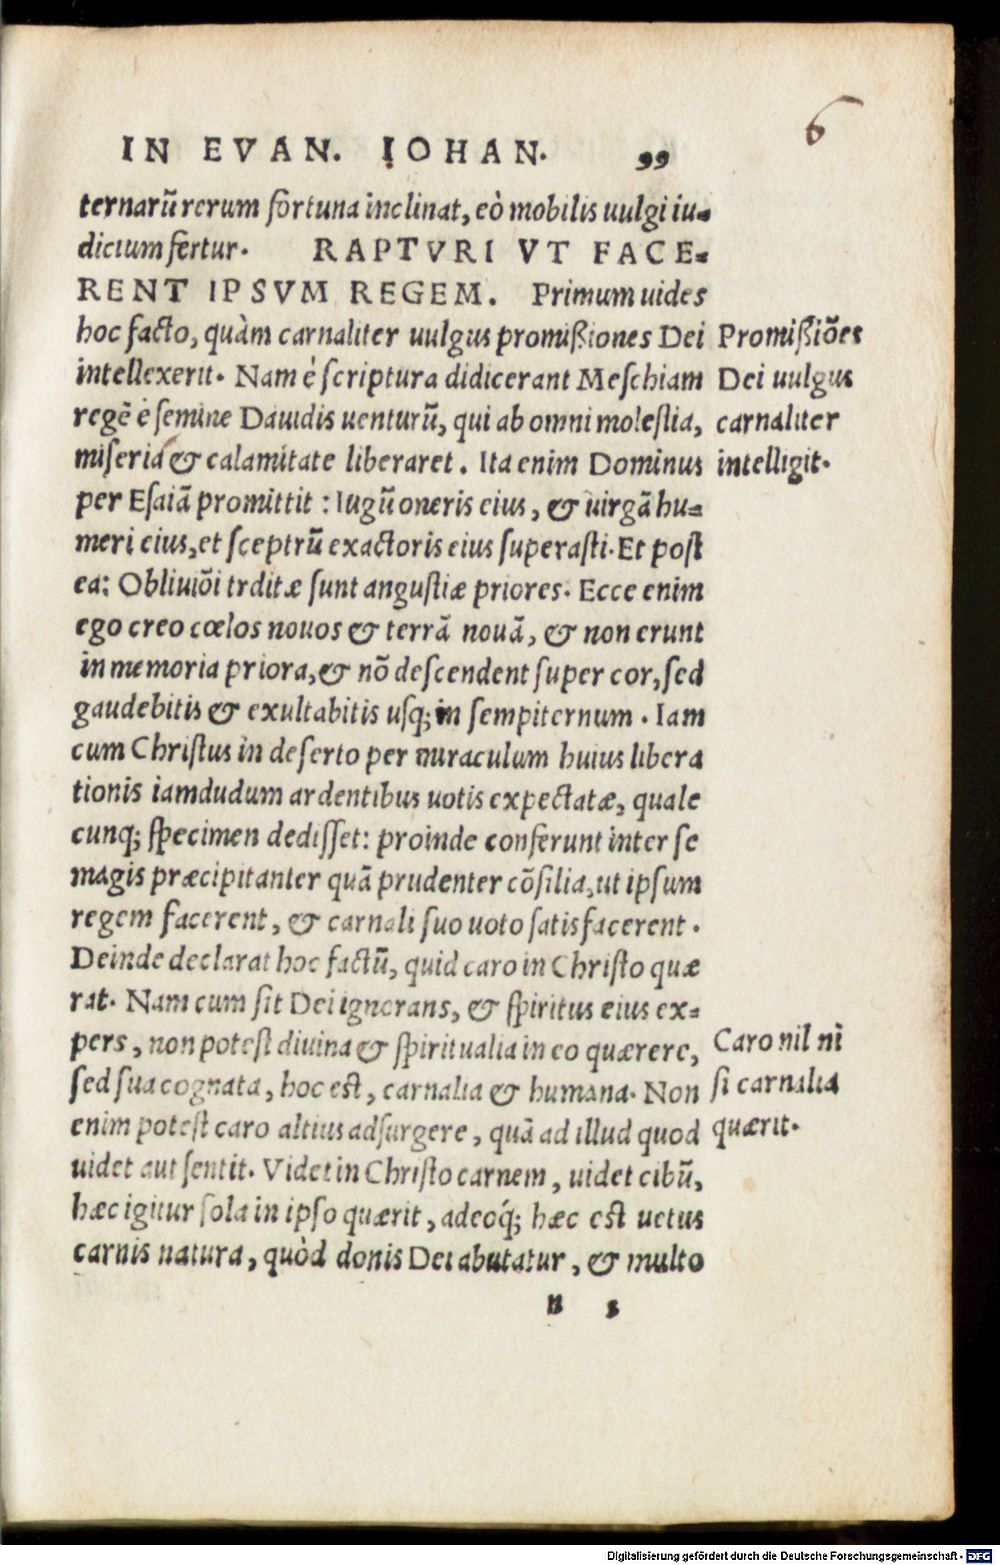 6
IN EVAN. IOHAN. 99
ternarū rerum fortuna inclinat, eò mobilis uulgi iu-
dicium fertur. RAPTVRI VT FACE-
RENT IPSVM REGEM. Primum uides
hoc facto, quàm carnaliter uulgus promißiones Dei
intellexerit. Nam è scriptura didicerant Meschiam
regē è semine Dauidis uenturū, qui ab omni molestia,
miseria & calamitate liberaret. Ita enim Dominus
per Esaiā promittit: Iugū oneris eius, & uirgā hu-
meri eius, et sceptrū exactoris eius superasti. Et post
ea: Obliuiōi trditæ sunt angustiæ priores. Ecce enim
ego creo cœlos nouos & terrā nouā, & non erunt
in memoria priora, & nō descendent super cor, sed
gaudebitis & exultabitis usq; in sempiternum. Iam
cum Christus in deserto per miraculum huius libera
tionis iamdudum ardentibus uotis expectatæ, quale
cunq; specimen dedisset: proinde conferunt inter se
magis præcipitanter quā prudenter cōsilia, ut ipsum
regem facerent, & carnali suo uoto satisfacerent.
Deinde declarat hoc factū, quid caro in Christo quæ
rat. Nam cum sit Dei ignorans, & spiritus eius ex-
pers, non potest diuina & spiritualia in eo quærere,
sed sua cognata, hoc est, carnalia & humana. Non
enim potest caro altius adsurgere, quā ad illud quod
uidet aut sentit. Videt in Christo carnem, uidet cibū,
hæc igitur sola in ipso quærit, adeoq́; hæc est uetus
carnis natura, quòd donis Dei abutatur, & multo
n s
Promißiōes
Dei uulgus
carnaliter
intelligit.
Caro nil ni
si carnalia
quærit.
Digitalisierung gefördert durch die Deutsche Forschungsgemeinschaft - DFG